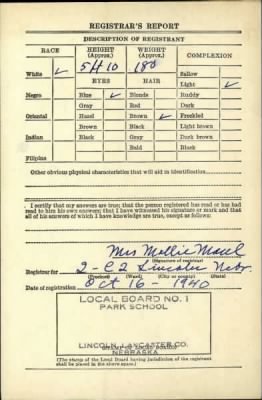 REGISTRAR'S REPORT
DESCRIPTION OF REGISTRANT
RACE
HEIGHT (Approx.)
WEIGHT (Approx.)
COMPLEXION
White ✓
5 ft 10
180
Sallow
EYES
HAIR
Light ✓
Negro
Blue ✓
Blonde
Ruddy
Gray
Red
Dark
Oriental
Hazel
Brown ✓
Freckled
Brown
Black
Light brown
Indian
Black
Gray
Dark brown
Bald
Black
Filipino
Other obvious physical characteristics that will aid in identification
I certify that my answers are true; that the person registered has read or has had
read to him his own answers; that I have witnessed his signature or mark and that
all of his answers of which I have knowledge are true, except as follows:
Mrs Mollie
(Signature of registrar)
Registrar for 2 - E2 Lincoln Nebr.
(Precinct) (Ward) (City or county) (State)
Date of registration Oct 16 - 1940
LOCAL BOARD NO. 1
PARK SCHOOL
LINCOLN, LANCASTER CO.
NEBRASKA
(The stamp of the Local Board having jurisdiction of the registrant
shall be placed in the above space.)